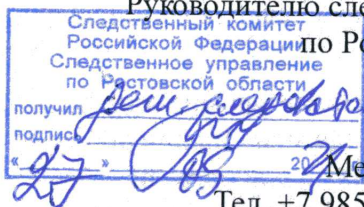 Руководителю сле
Следственный комитет
Российской Федерации по Ро
Следственное управление
по Ростовской области
получил
подпись
« 27 » 05 20
Ме
Тел. +7 985